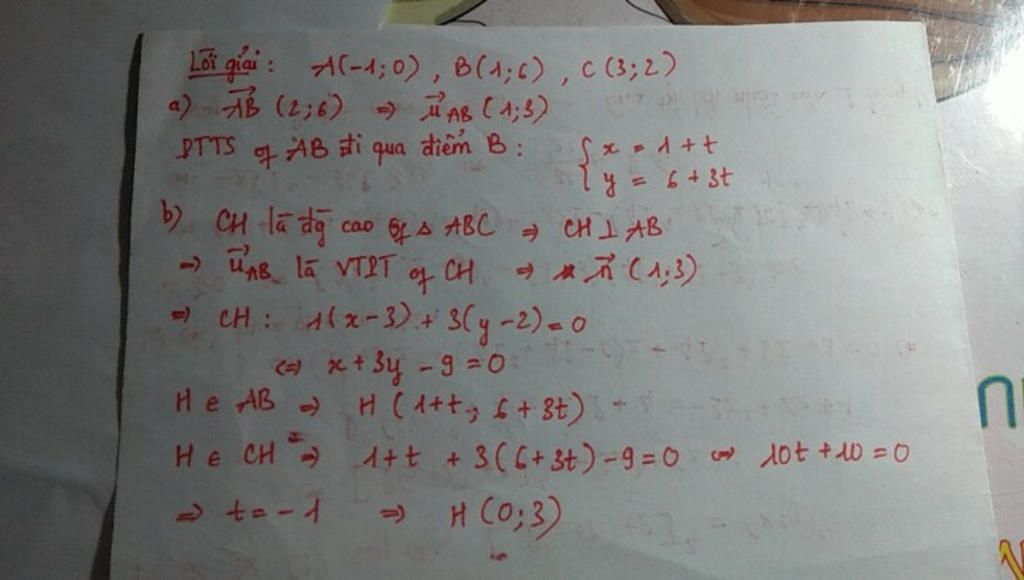 Lời giải: A(-1;0), B(1;6), C(3;2)
a) \vec{AB} (2;6) ⇒ \vec{u}_{AB} (1;3)
PTTS of AB đi qua điểm B: { x = 1 + t
y = 6 + 3t
b) CH là đg cao of Δ ABC ⇒ CH ⊥ AB
⇒ \vec{u}_{AB} là VTPT of CH ⇒ \vec{n} (1;3)
⇒ CH: 1(x-3) + 3(y-2) = 0
⇔ x + 3y - 9 = 0
H ∈ AB ⇒ H (1+t; 6+3t)
H ∈ CH ⇒ 1+t + 3(6+3t) - 9 = 0 ⇔ 10t + 10 = 0
⇒ t = -1 ⇒ H (0;3)